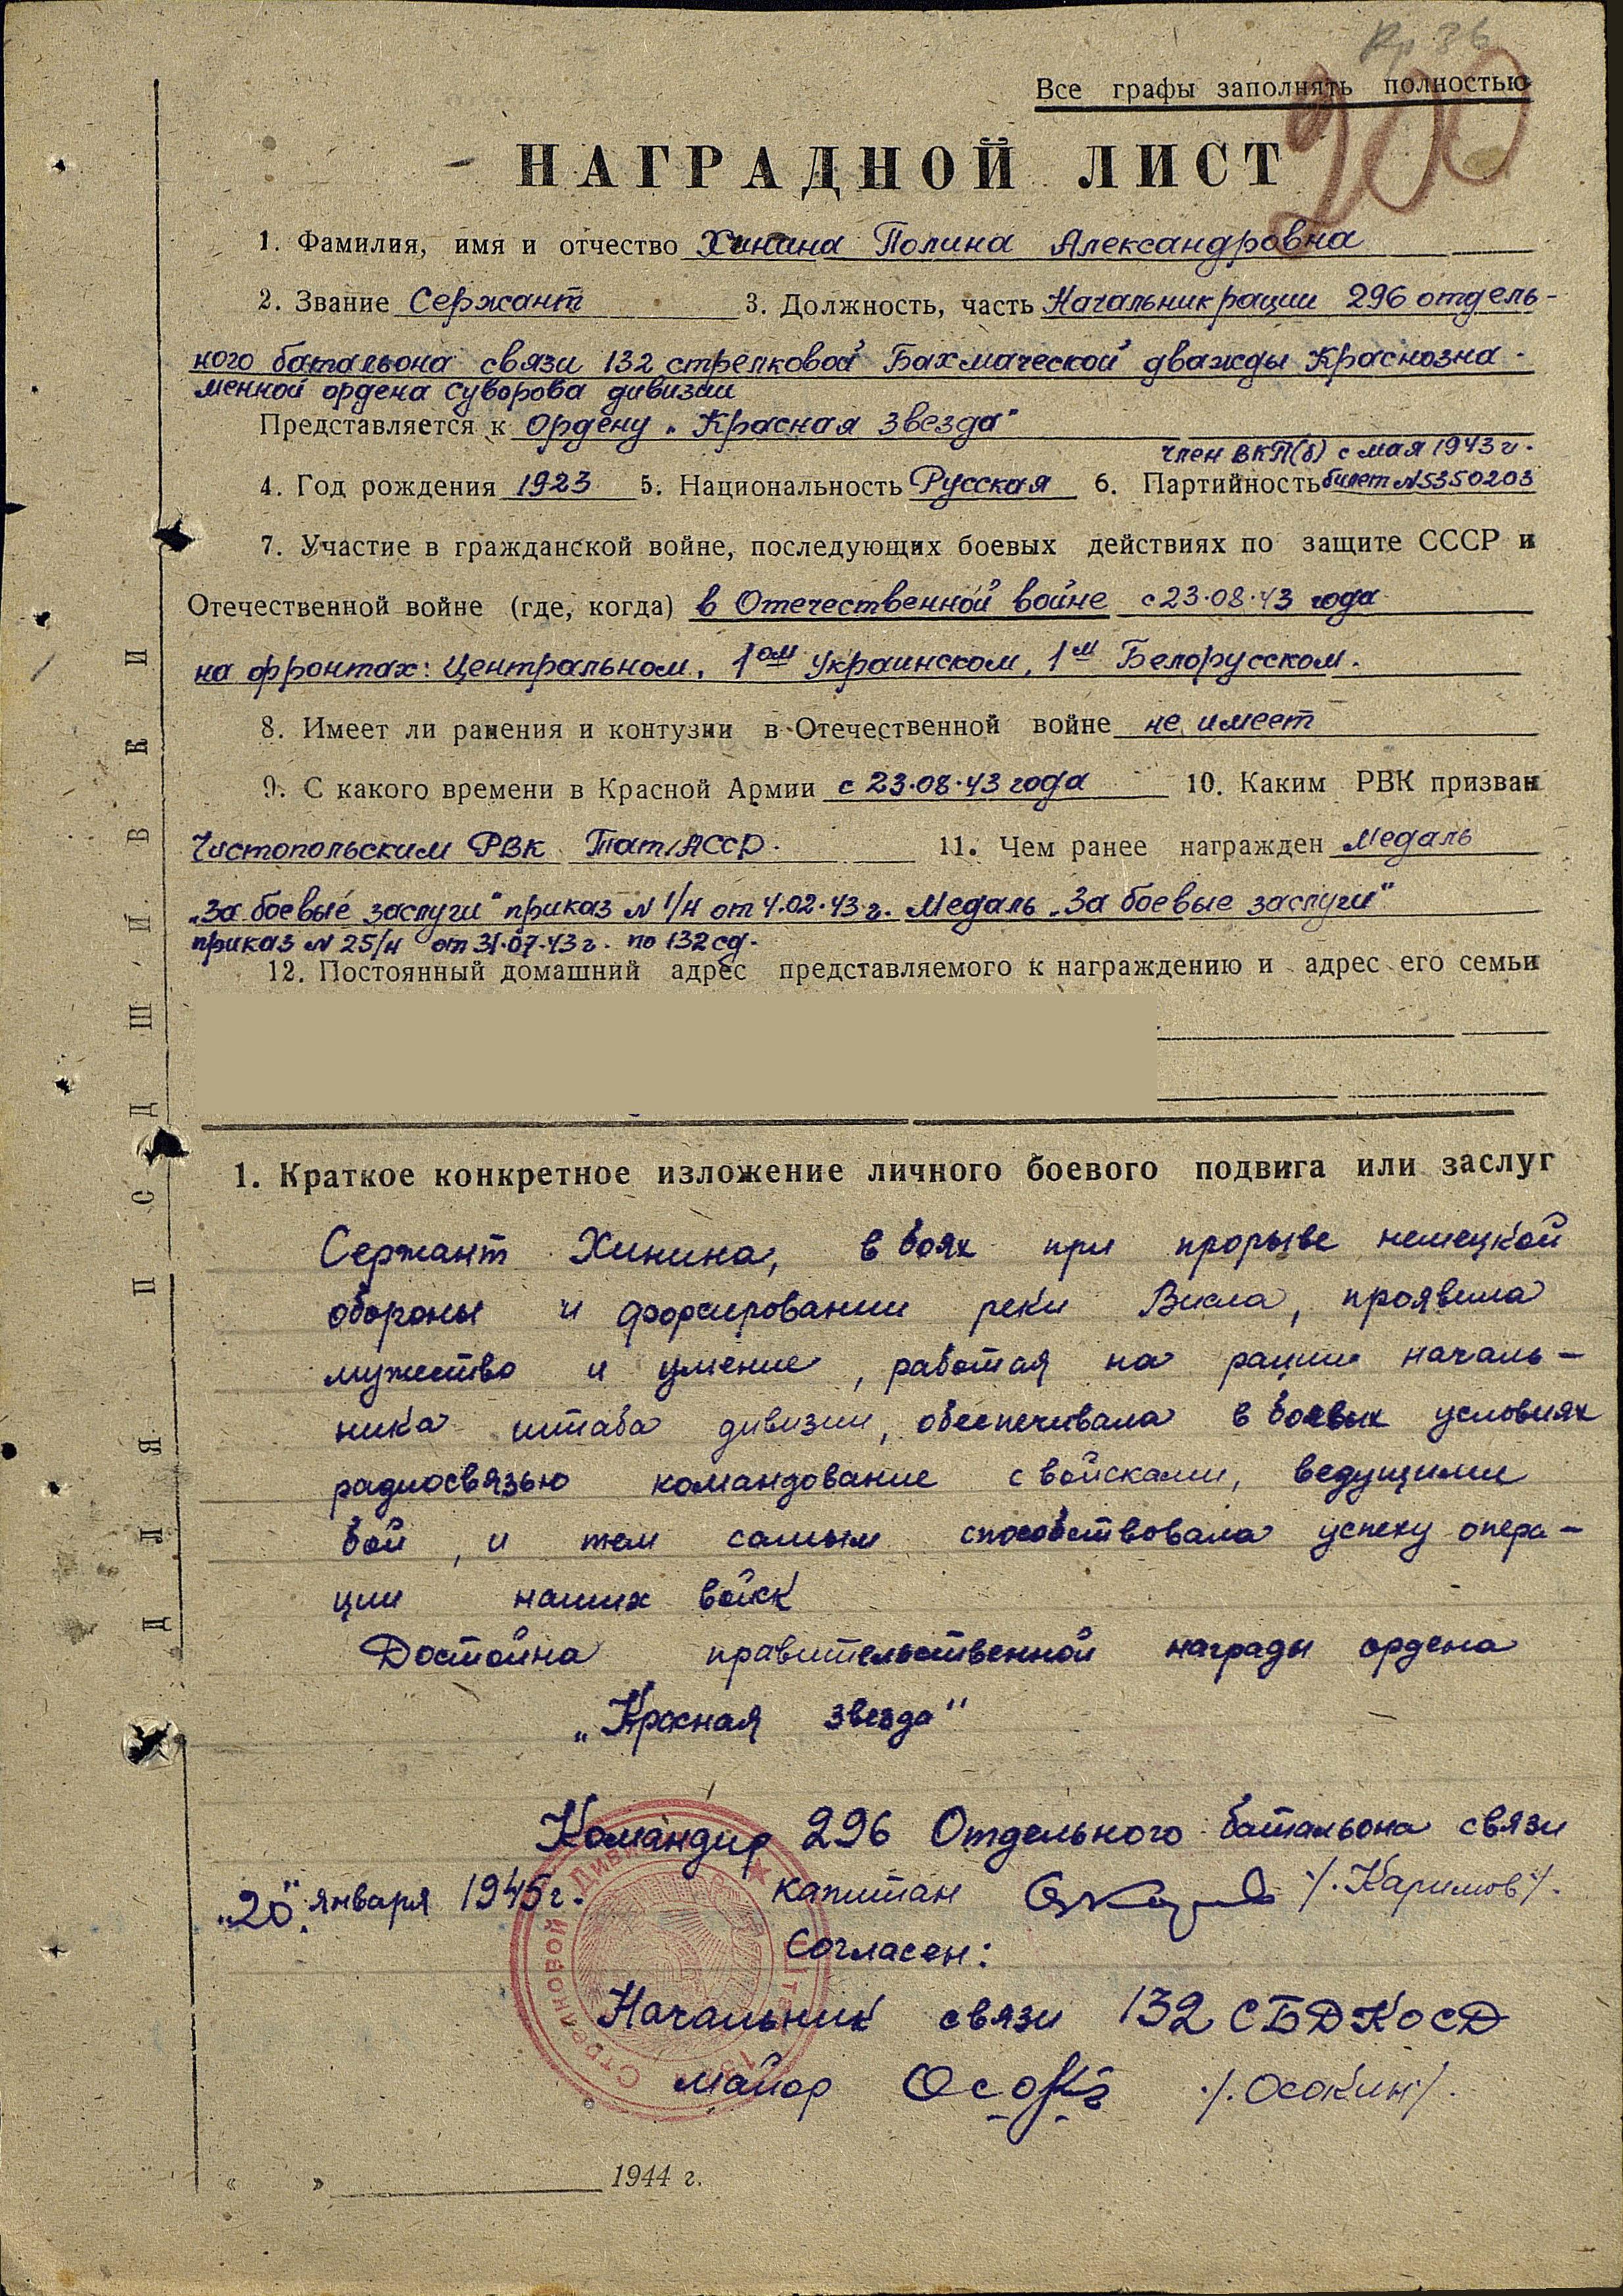 Кр 36
200
Все графы заполнять полностью
НАГРАДНОЙ ЛИСТ
1. Фамилия, имя и отчество Хинина Полина Александровна
2. Звание Сержант 3. Должность, часть Начальник рации 296 отдель-
ного батальона связи 132 стрелковой Бахмаческой дважды Краснозна-
менной ордена Суворова дивизии
Представляется к Ордену „Красная Звезда"
член ВКП(б) с мая 1943 г.
4. Год рождения 1923 5. Национальность Русская 6. Партийность билет №5350203
7. Участие в гражданской войне, последующих боевых действиях по защите СССР и
Отечественной войне (где, когда) в Отечественной войне с 23.08.43 года
на фронтах: Центральном, 1ом Украинском, 1м Белорусском.
8. Имеет ли ранения и контузии в Отечественной войне не имеет
9. С какого времени в Красной Армии с 23.08.43 года 10. Каким РВК призван
Чистопольским РВК ТатАССР. 11. Чем ранее награжден Медаль
„За боевые заслуги" приказ № 1/н от 4.02.43 г. Медаль „За боевые заслуги"
приказ № 25/н от 31.07.43 г. по 132 сд.
12. Постоянный домашний адрес представляемого к награждению и адрес его семьи
1. Краткое конкретное изложение личного боевого подвига или заслуг
Сержант Хинина, в боях при прорыве немецкой
обороны и форсировании реки Висла, проявила
мужество и умение, работая на рации началь-
ника штаба дивизии, обеспечивала в боевых условиях
радиосвязью командование с войсками, ведущими
бой, и тем самым способствовала успеху опера-
ции наших войск
Достойна правительственной награды ордена
„Красная звезда"
Командир 296 Отдельного батальона связи
„20" января 1945 г. капитан /.Каримов/.
Согласен:
Начальник связи 132 СБДКОСД
майор Осок /.Осокин/.
« » 1944 г.
ДЛЯ ПОДШИВКИ
Стрелковой Дивизии